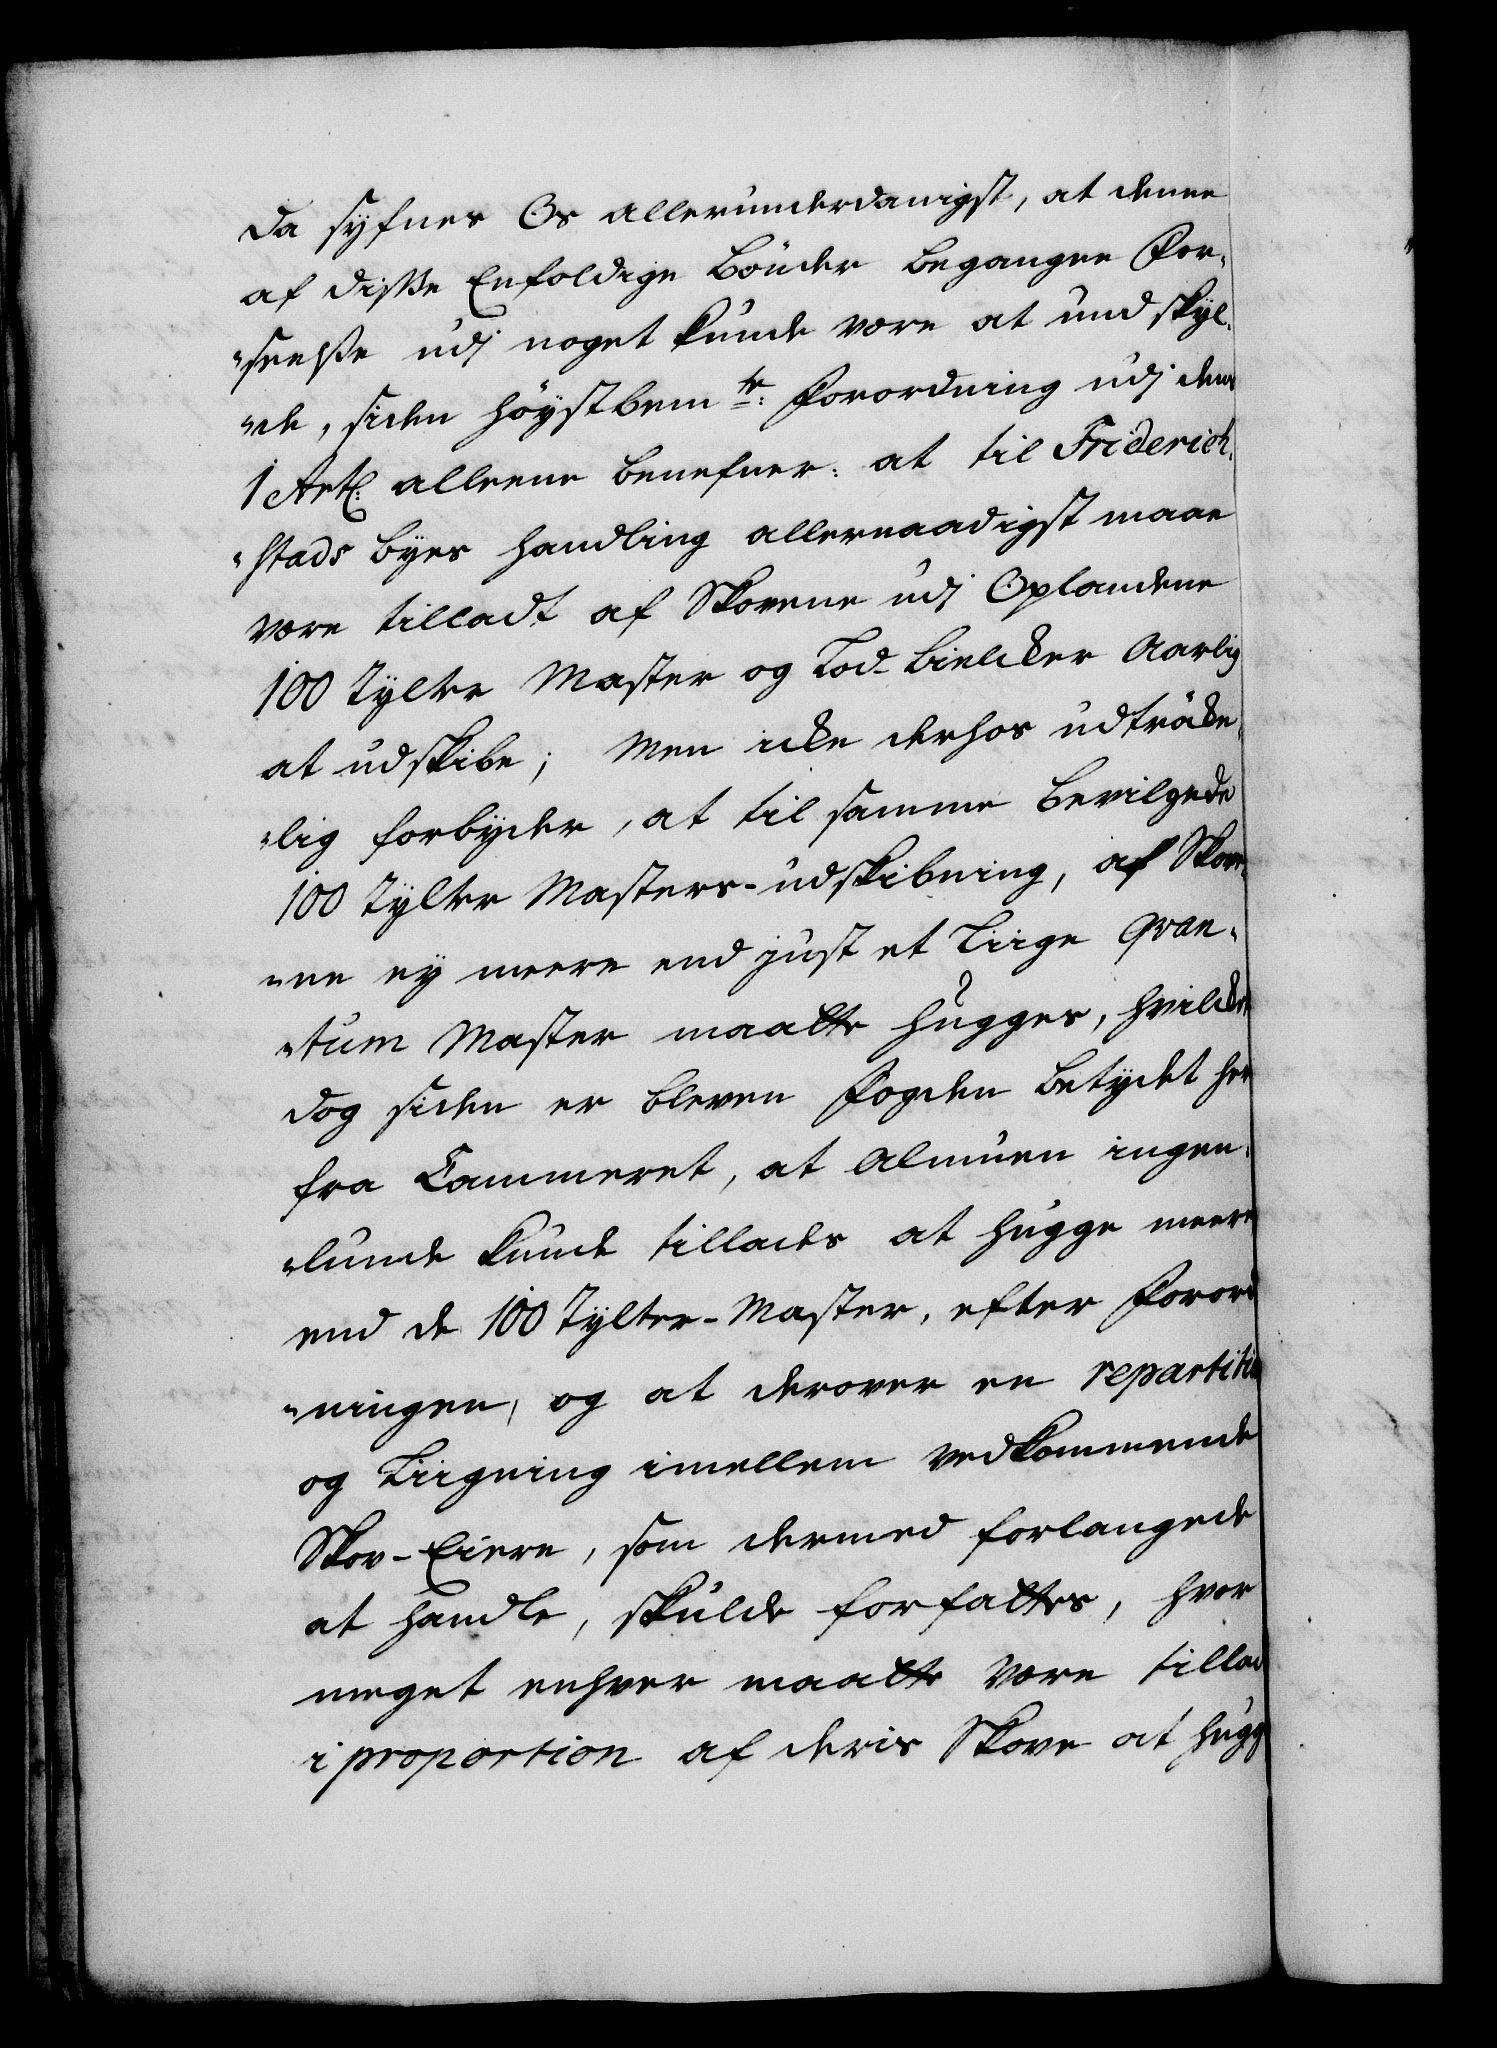 da syfnes Os allerunderdanigst, at denne
af disse Enfoldige Bönder begangne For„
„seelse udj noget kunde være at undskyl„
„de, siden höystbem te: Forordning udj dens
1 Art: alleene benefner: at til Friderich„
„stads Byes handling allernaadigst maae
være tilladt af Skovene udj Oplandene
100 Tylter Master og Lod-Bielcker Aarlig
at udskibe; Men icke derhos udtröcke„
„lig forbyder, at til samme bevilgede
100 Tylter Masters-udskibning, af Skove„
„ne ey meere end just et Liige Qvan„
„tum Master maatte hugges, hvilcket
dog siden er bleven Fogden betydet her
fra Cammeret, at Almuen ingen„
„lunde kunde tillades at hugge meere
end de 100 Tylter-Master, efter Forord
„ningen, og at derover en repartition
og Liigning imellem vedkommende
Skov-Eiere, som dermed forlangede
at handle, skulde forfattes, hvor
meget enhver maatte være tillad
i proportion af deris Skove at hugg